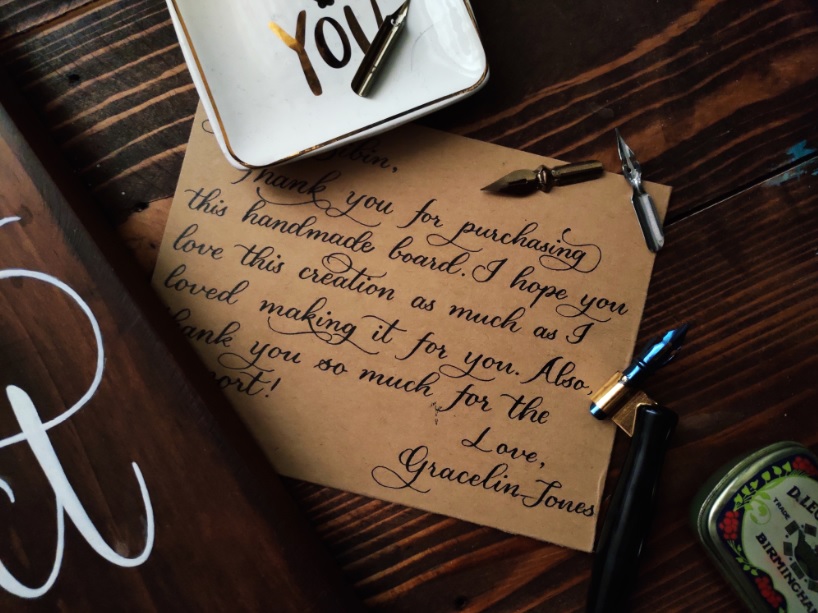 YOU
Thank you for purchasing
this handmade board. I hope you
love this creation as much as I
loved making it for you. Also,
you so much for the
Love,
Gracelin-Jones
BIRMINGHA